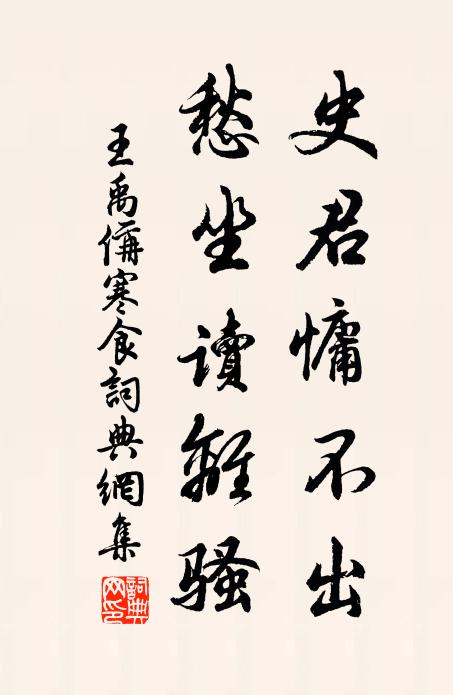 史君慵不出
愁坐讀離騷
王禹偁寒食詞典網集
詞典網印